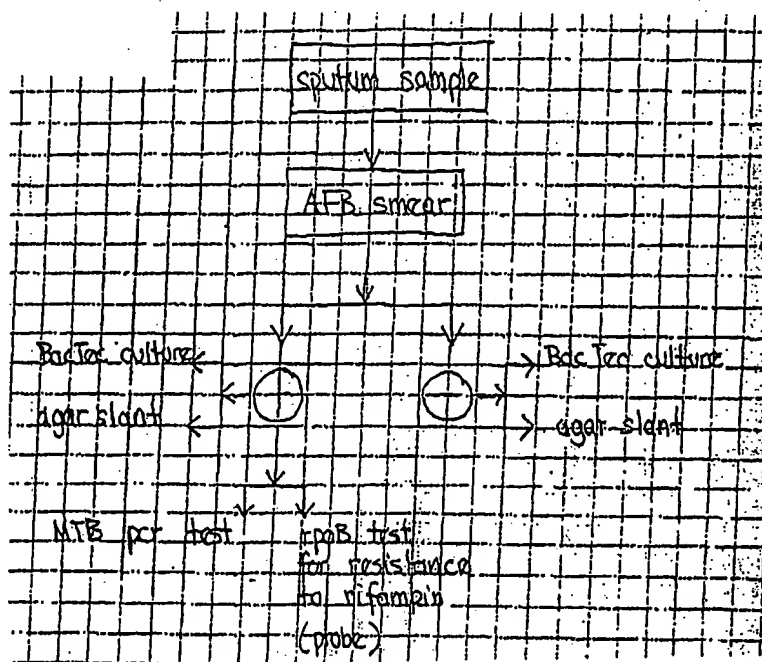 sputum sample
AFB smear
BacTec culture
BacTec culture
agar slant
agar slant
MTB pcr test
rpoB test
for resistance
to rifampin
(probe)